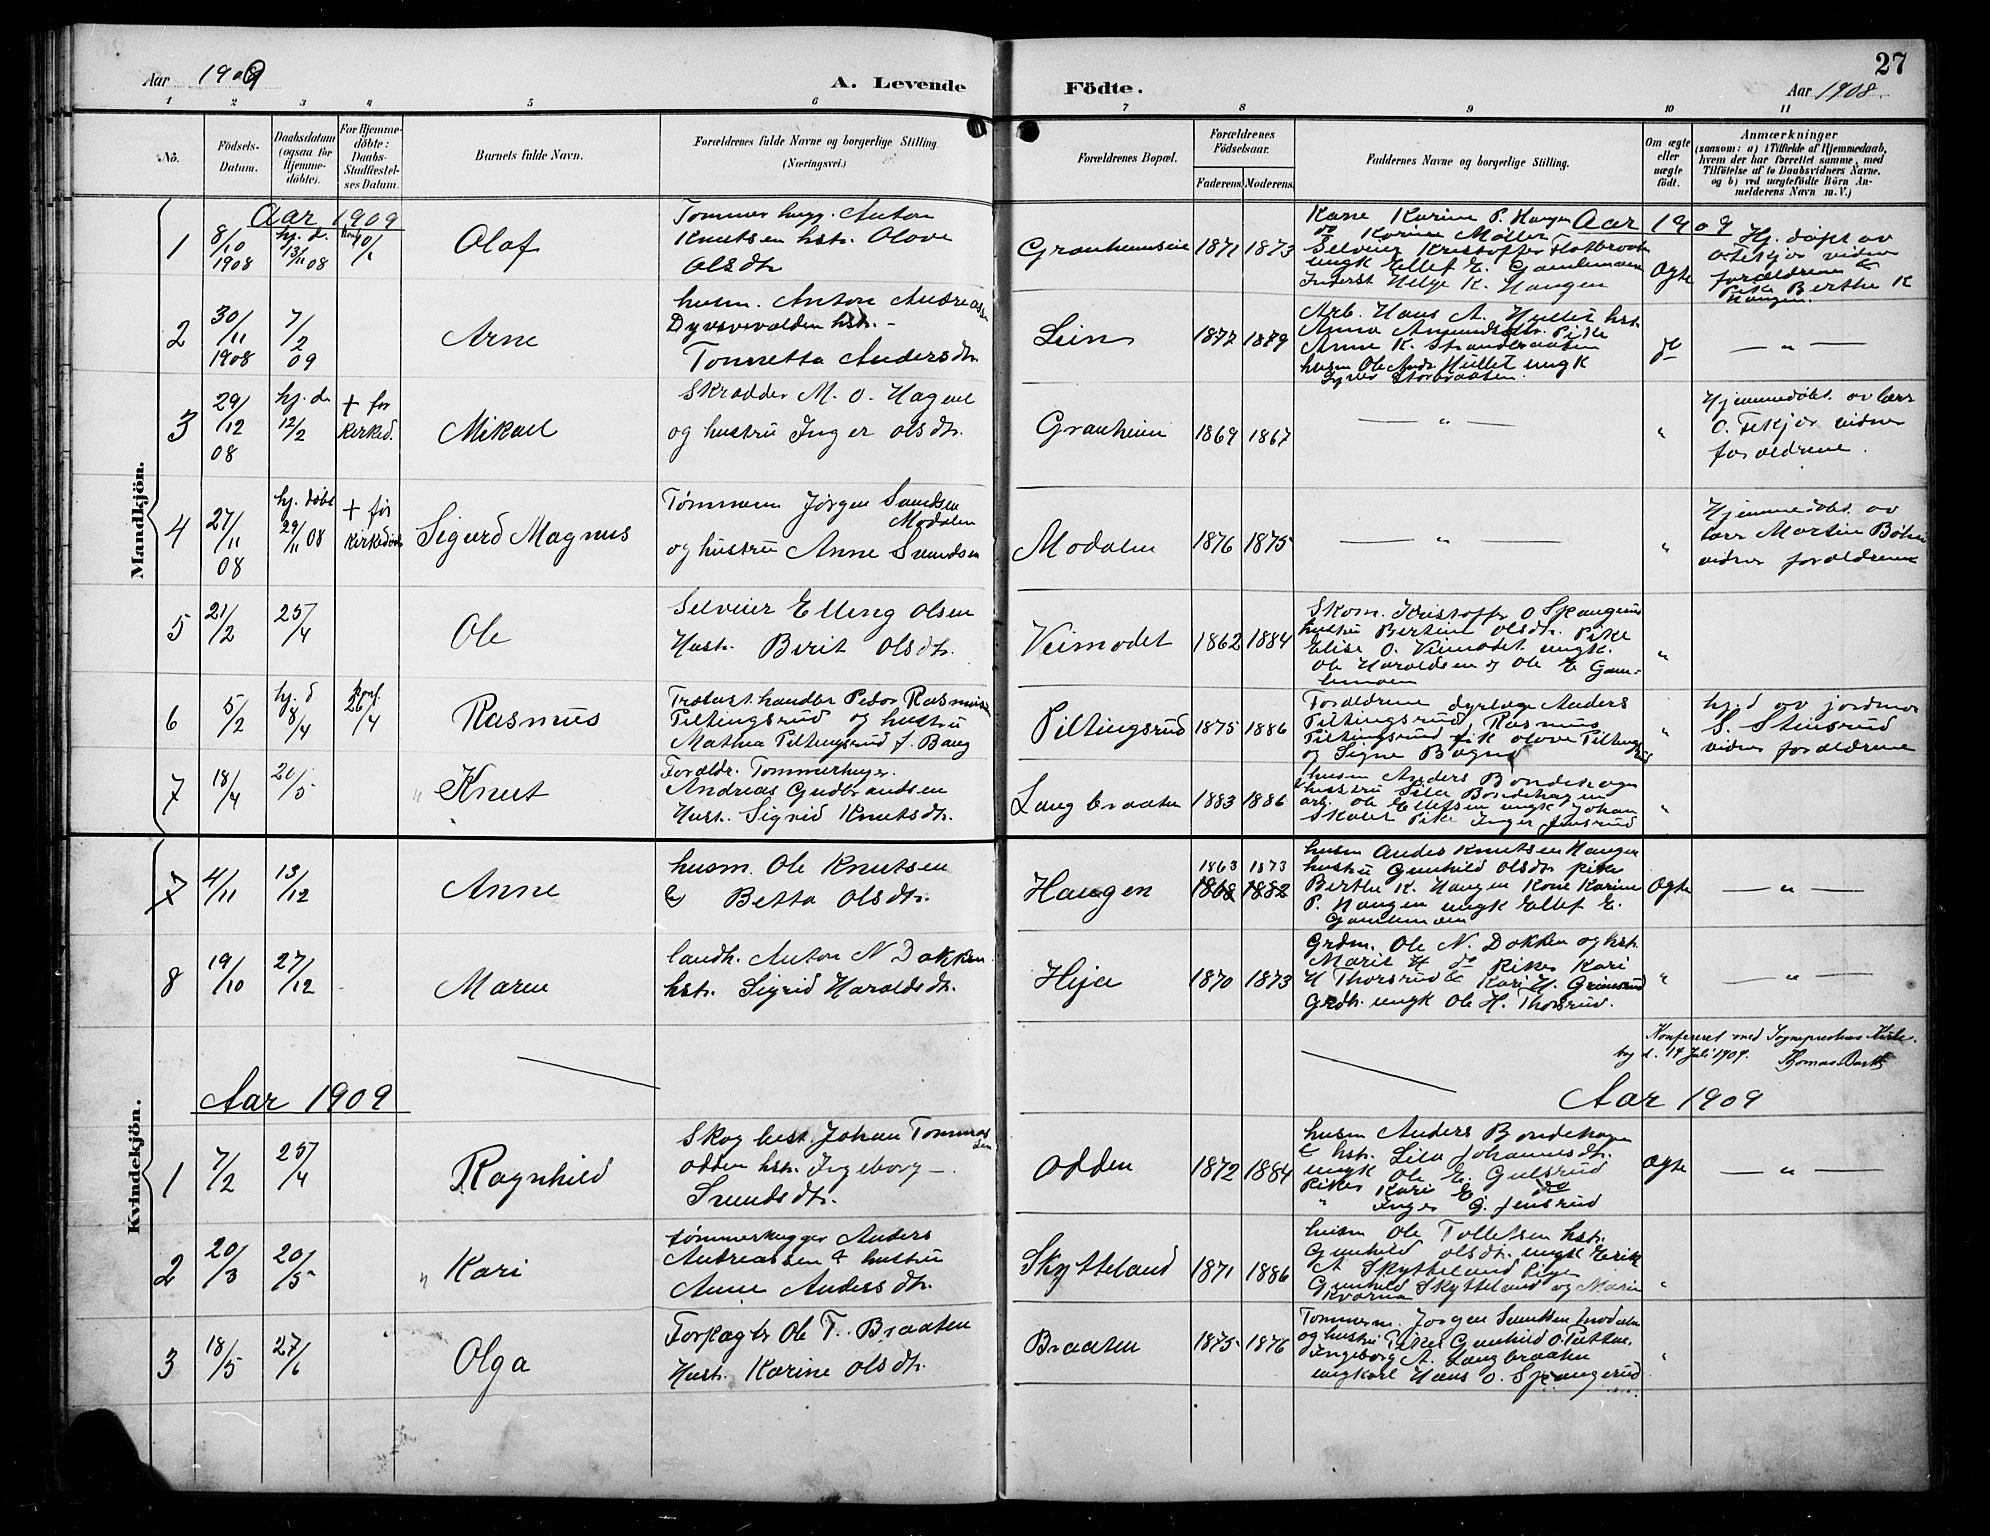 Aar 1909
A. Levende
Födte.
27
Aar 1908
1 2 3 4 5 6 7 8 9 10 11
No.
Födsels-
Datum.
Daabsdatum
(ogsaa for
Hjemme-
döbte).
For Hjemme-
döbte:
Daabs-
Stadfæstel-
ses Datum.
Barnets fulde Navn.
Forældrenes fulde Navne og borgerlige Stilling.
(Næringsvei.)
Forældrenes Bopæl.
Forældrenes
Födselsaar.
Faderens. Moderens.
Faddernes Navne og borgerlige Stilling.
Om ægte
eller
uægte
födt.
Anmærkninger
(saasom: a) i Tilfælde af Hjemmedaab,
hvem der har forrettet samme, med
Tilföielse af to Daabsvidners Navne,
og b) ved uægtefödte Börn An-
melderens Navn m. V.)
Mandkjön.
Aar 1909
Aar 1909
1
8/10
1908
hj. d.
13/11 08
10/1
Olof
Tømmerhugg. Anton
Knutsen hstr. Olove
Olsdtr.
Granheimseie
1871 1873
Kone Karine P. Haugen
do Karine Møller
Selveier Kristoffer Flatbraaten
ungk Ellef E. Gamlemoen
Inderst Helge K. Haugen
Ægte
Hj. døpt av
O. Fekjær vidner
forældrene &
Pike Berthe K
Haugen.
2
30/11
1908
7/2
09
Arne
husm. Anton Andreassen
Dyvsvevolden hstr. -
Tonnetta Andersdtr.
Lien
1872 1879
Arb. Hans A. Hullet hstr.
Anna Amundsdtr. Pike
Anne K. Strandbraaten
husm Ole Andr. Hullet ungk
Syver Storbraaten.
do
— " —
3
29/12
08
hj. d.
12/2
+ før
kirked.
Mikael
Skrædder M. O. Hagene
og hustru Inger Olsdtr.
Granheim
1869 1867
— " —
"
Hjemmedøbt av lærer
O. Fekjær vidner
forældrene.
4
27/11
08
hj. døbt
29/11 08
+ før
kirkedaab
Sigurd Magnus
Tømmerm Jørgen Svendsen
Modalen
og hustru Anne Svendsen
Modalen
1876 1875
— " —
"
Hjemmedøbt av
lærer Martin Bøhn
vidner forældrene
5
21/2
25/4
Ole
Selveier Elling Olsen
Hustr. Berit Olsdtr.
Veimodet
1862 1884
Skom. Kristoffer O Spangerud
hustru Bertine Olsdtr. Pike
Elise O. Veimodet ungk.
Ole Haraldsen og Ole E Gam-
lemoen
"
6
5/2
hj. d
8/4
Konf.
26/4
Rasmus
Trælasthandler Peder Rasmusen
Piltingsrud og hustru
Mathea Piltingsrud f. Bang
Piltingsrud
1875 1886
Forældrene dyrlæge Anders
Piltingsrud, Rasmus
Piltingsrud frk Olove Piltingsrud
og Signe Bagne
"
hjd av jordmor
S. Stensrud
vidner forældrene
7
18/4
20/5
" Knut
Forældr. Tømmerhuger
Andreas Gudbrandsen
Hust. Sigrid Knutsdtr.
Langbraaten
1883 1886
husm Anders Bondehagen
hustru Sila Bondehagen
arb. Ole Ellefsen ungk Johan
Skolet Pike Inger Jensrud
"
Kvindekjön.
7
4/11
13/12
Anne
husm. Ole Knutsen
& Betta Olsdtr.
Haugen
1863 1873
1868 1882
husm Anders Knutsen Haugen
hustru Gunhild Olsdtr. Pike
Berthe K. Haugen Kone Karine
P. Haugen ungk Ellef E.
Gamlemoen
Ægte
— " —
8
19/10
27/12
Maren
landh. Anton N Dokken
hstr. Sigrid Haraldsdtr.
Heja
1870 1873
Grdm. Ole N. Dokken og hstr.
Marit H do Piker Kari
H Thorsrud & Kari H. Grimsrud
Grdbr. ungk Ole H. Thorsrud.
"
— " —
Konfereret med Sogneprestens Kirke-
bog d. 14 Juli 1909. Thomas Barth
Aar 1909
Aar 1909
1
7/2
25/4
Ragnhild
Skogbest. Johan Tommas
sen
Odden hstr. Ingeborg —
Svendsdtr.
Odden
1872 1884
husm Anders Bondehagen
& hstr. Sila Johannesdtr.
ungk Ole E. Gulsrud
Piker Kari E. do
" Inger G. Jensrud
Ægte
— " —
2
20/3
20/5
" Kari
tømmerhugger Anders
Andreassen & hustru
Anne Andersdtr.
Skytteland
1871 1886
husm Ole Tollefsen hstr.
Gunhild Olsdtr. ungk Erik
A Skytteland Piger
Gunhild Skytteland og Marie
Kværna
"
3
18/5
27/6
Olga
Forpagter Ole T. Braaten
Hustr. Karine Olsdtr.
Braaten
1875 1876
Tømmerm. Jørgen Svendsen Modalen
og hustru Piker Gunhild O. Putten
Ingeborg A. Langbraaten
ungkarl Hans O. Spangerud
"